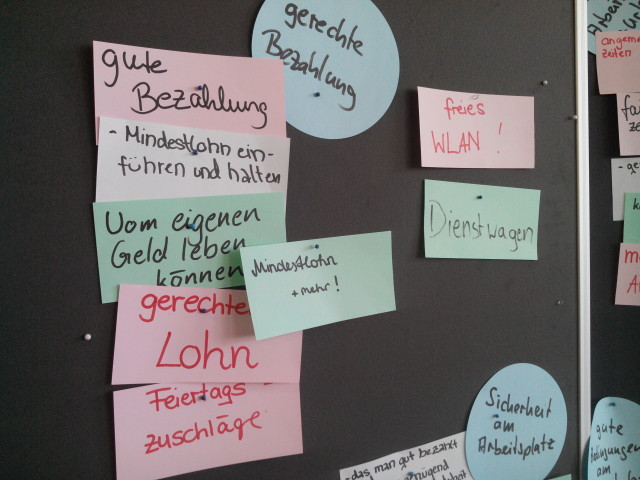 gerechte
Bezahlung
gute
Bezahlung
- Mindestlohn ein-
führen und halten
Vom eigenen
Geld leben
können
Mindestlohn
+ mehr !
gerechte
Lohn
Feiertags
zuschläge
freies
WLAN !
Dienstwagen
Sicherheit
am
Arbeitsplatz
- das, man gut bezahlt
zeiten
gute
am